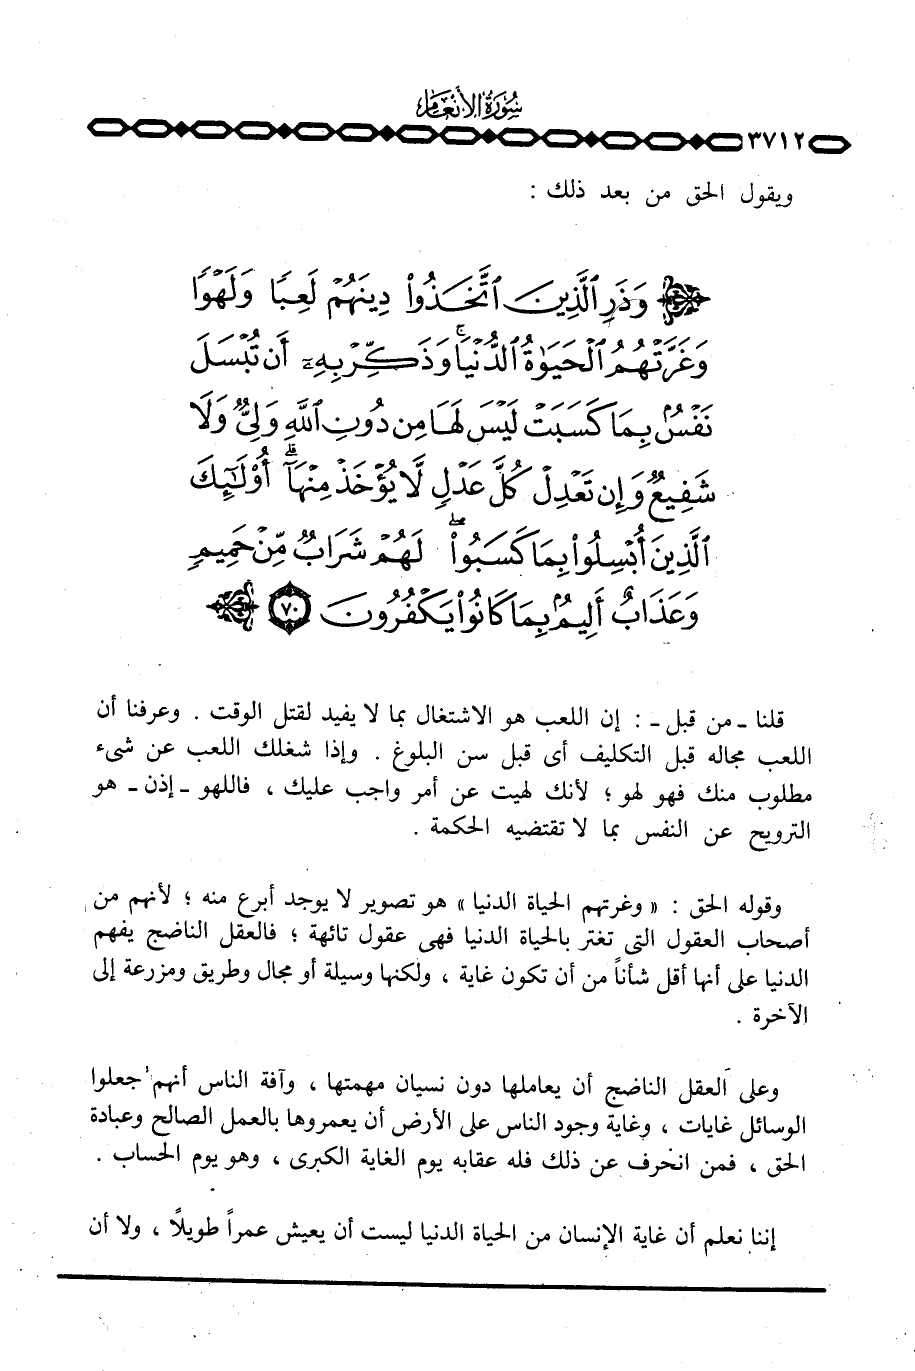 سُورَةُ الأَنْعَام
٣٧١٢
ويقول الحق من بعد ذلك :
وَذَرِ ٱلَّذِينَ ٱتَّخَذُوا۟ دِينَهُمْ لَعِبًا وَلَهْوًا
وَغَرَّتْهُمُ ٱلْحَيَوٰةُ ٱلدُّنْيَا ۚ وَذَكِّرْ بِهِۦٓ أَن تُبْسَلَ
نَفْسٌۢ بِمَا كَسَبَتْ لَيْسَ لَهَا مِن دُونِ ٱللَّهِ وَلِىٌّ وَلَا
شَفِيعٌ وَإِن تَعْدِلْ كُلَّ عَدْلٍ لَّا يُؤْخَذْ مِنْهَآ ۗ أُو۟لَـٰٓئِكَ
ٱلَّذِينَ أُبْسِلُوا۟ بِمَا كَسَبُوا۟ ۖ لَهُمْ شَرَابٌ مِّنْ حَمِيمٍ
وَعَذَابٌ أَلِيمٌۢ بِمَا كَانُوا۟ يَكْفُرُونَ ٧٠
قلنا ـ من قبل ـ : إن اللعب هو الاشتغال بما لا يفيد لقتل الوقت . وعرفنا أن
اللعب مجاله قبل التكليف أى قبل سن البلوغ . وإذا شغلك اللعب عن شىء
مطلوب منك فهو لهو ؛ لأنك لهيت عن أمر واجب عليك ، فاللهو ـ إذن ـ هو
الترويح عن النفس بما لا تقتضيه الحكمة .
وقوله الحق : « وغرتهم الحياة الدنيا » هو تصوير لا يوجد أبرع منه ؛ لأنهم من
أصحاب العقول التى تغتر بالحياة الدنيا فهى عقول تائهة ؛ فالعقل الناضج يفهم
الدنيا على أنها أقل شأناً من أن تكون غاية ، ولكنها وسيلة أو مجال وطريق ومزرعة إلى
الآخرة .
وعلى العقل الناضج أن يعاملها دون نسيان مهمتها ، وآفة الناس أنهم جعلوا
الوسائل غايات ، وغاية وجود الناس على الأرض أن يعمروها بالعمل الصالح وعبادة
الحق ، فمن انحرف عن ذلك فله عقابه يوم الغاية الكبرى ، وهو يوم الحساب .
إننا نعلم أن غاية الإنسان من الحياة الدنيا ليست أن يعيش عمراً طويلًا ، ولا أن